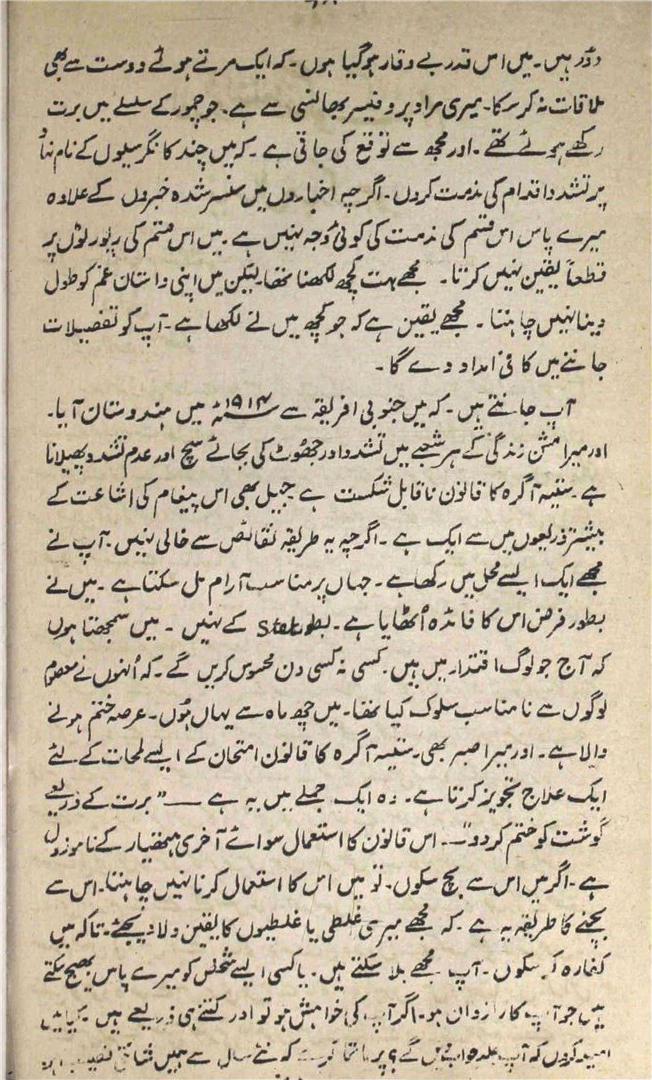 دُور ہیں۔ میں اس قدر بے وقار ہو گیا ہوں۔ کہ ایک مرتے ہوئے دوست سے بھی
ملاقات نہ کر سکا۔ میری مراد پروفیسر بھانسی سے ہے۔ جو چمور کے سلسلے میں برت
رکھے ہوئے تھے۔ اور مجھ سے توقع کی جاتی ہے۔ کہ میں چند کانگرسیوں کے نام نہاد
پر تشدد اقدام کی مذمت کروں۔ اگرچہ اخباروں میں سنسر شدہ خبروں کے علاوہ
میرے پاس اس قسم کی مذمت کی کوئی وجہ نہیں ہے۔ میں اس قسم کی رپورٹوں پر
قطعاً یقین نہیں کرتا۔ مجھے بہت کچھ لکھنا تھا۔ لیکن میں اپنی داستان غم کو طول
دینا نہیں چاہتا۔ مجھے یقین ہے کہ جو کچھ میں نے لکھا ہے۔ آپ کو تفصیلات
جاننے میں کافی امداد دے گا۔
آپ جانتے ہیں۔ کہ میں جنوبی افریقہ سے ۱۹۱۴ء میں ہندوستان آیا۔
اور میرا مشن زندگی کے ہر شعبے میں تشدد اور جھوٹ کی بجائے سچ اور عدم تشدد پھیلانا
ہے۔ ستیہ آگرہ کا قانون ناقابل شکست ہے جیل بھی اس پیغام کی اشاعت کے
بیشتر ذریعوں میں سے ایک ہے۔ اگرچہ یہ طریقہ نقائص سے خالی نہیں۔ آپ نے
مجھے ایک ایسے محل میں رکھا ہے۔ جہاں پر مناسب آرام مل سکتا ہے۔ میں نے
بطور فرض اس کا فائدہ اُٹھایا ہے۔ بطور کے نہیں۔ میں سمجھتا ہوں
کہ آج جو لوگ اقتدار میں ہیں۔ کسی نہ کسی دن محسوس کریں گے۔ کہ اُنہوں نے معصوم
لوگوں سے نامناسب سلوک کیا تھا۔ میں چھ ماہ سے یہاں ہُوں۔ عرصہ ختم ہونے
والا ہے۔ اور میرا صبر بھی۔ ستیہ آگرہ کا قانون امتحان کے ایسے لمحات کے لئے
ایک علاج تجویز کرتا ہے۔ وہ ایک جملے میں یہ ہے — "برت کے ذریعے
گوشت کو ختم کر دو"۔ اس قانون کا استعمال سوائے آخری ہتھیار کے ناموزوں
ہے۔ اگر میں اس سے بچ سکوں۔ تو میں اس کا استعمال کرنا نہیں چاہتا۔ اس سے
بچنے کا طریقہ یہ ہے۔ کہ مجھے میری غلطی یا غلطیوں کا یقین دلا دیجئے۔ تاکہ میں
کفارہ کر سکوں۔ آپ مجھے بلا سکتے ہیں۔ یا کسی ایسے شخص کو میرے پاس بھیج سکتے
ہیں جو آپ کا رازدان ہو۔ اگر آپ کی خواہش ہو تو اور کتنے ہی ذریعے ہیں۔ کیا میں
امید کروں کہ آپ جلد جواب دیں گے؟ کہ نئے سال سے ہمیں شانتی نصیب ہو